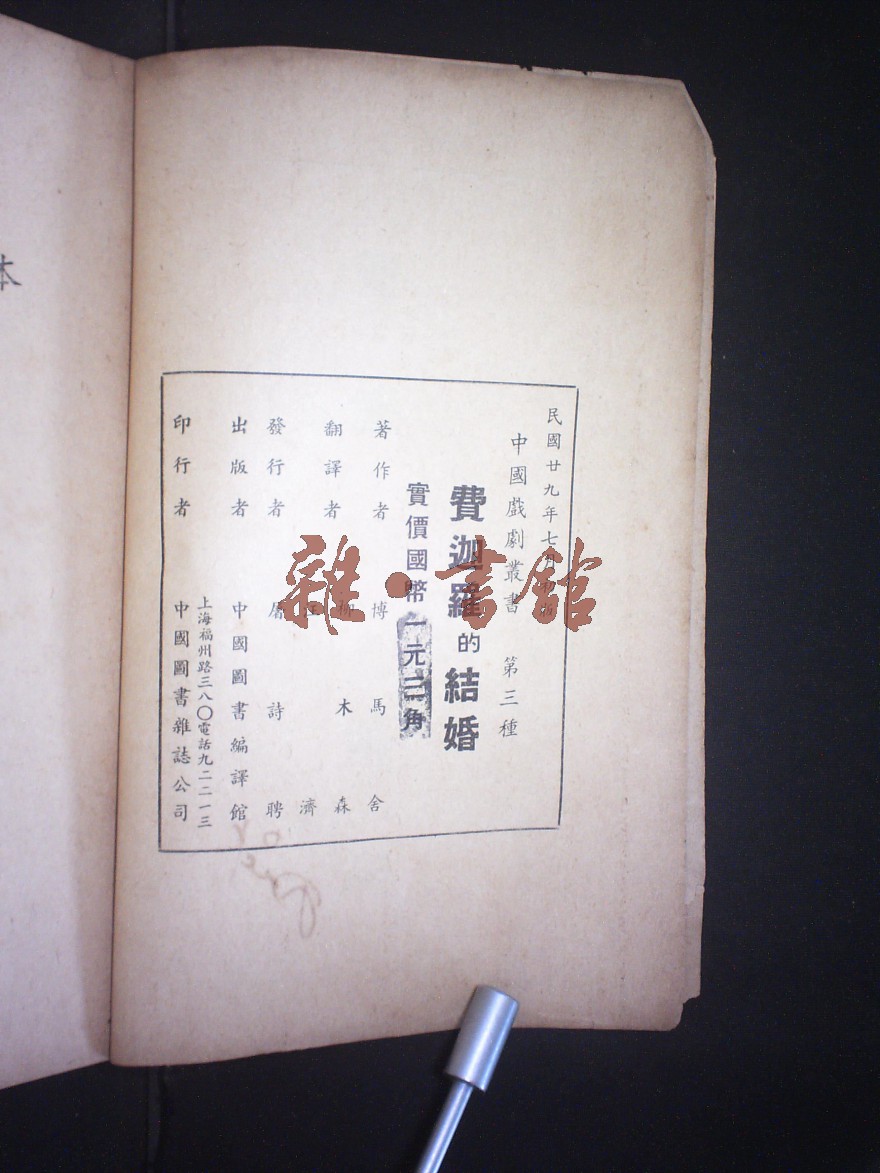 民國廿九年七月初版
中國戲劇叢書 第三種
費迦羅的結婚
實價國幣一元二角
著作者 博馬舍
翻譯者 柳木森
汪濟
發行者 屠詩聘
出版者 中國圖書編譯館
上海福州路三八〇電話九二二一三
印行者 中國圖書雜誌公司
本
雜·書館